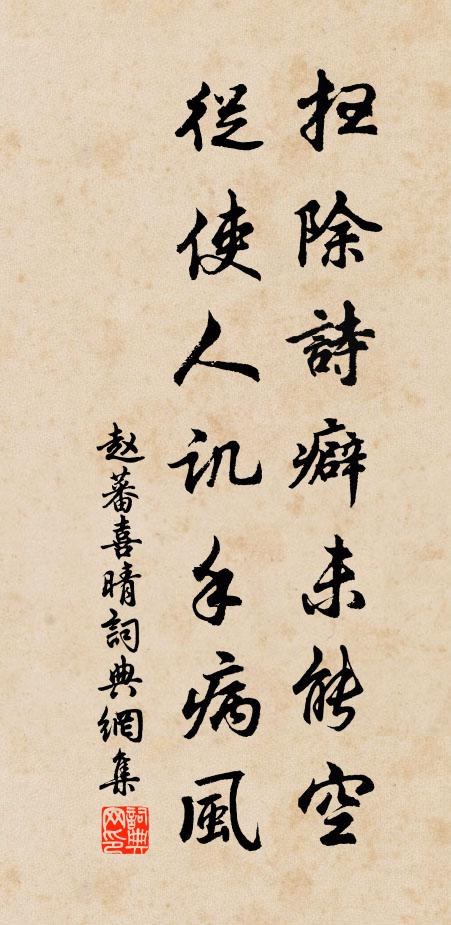 扫除詩癖未能空
從使人讥手病風
赵蕃喜晴詞典網集
詞典网印